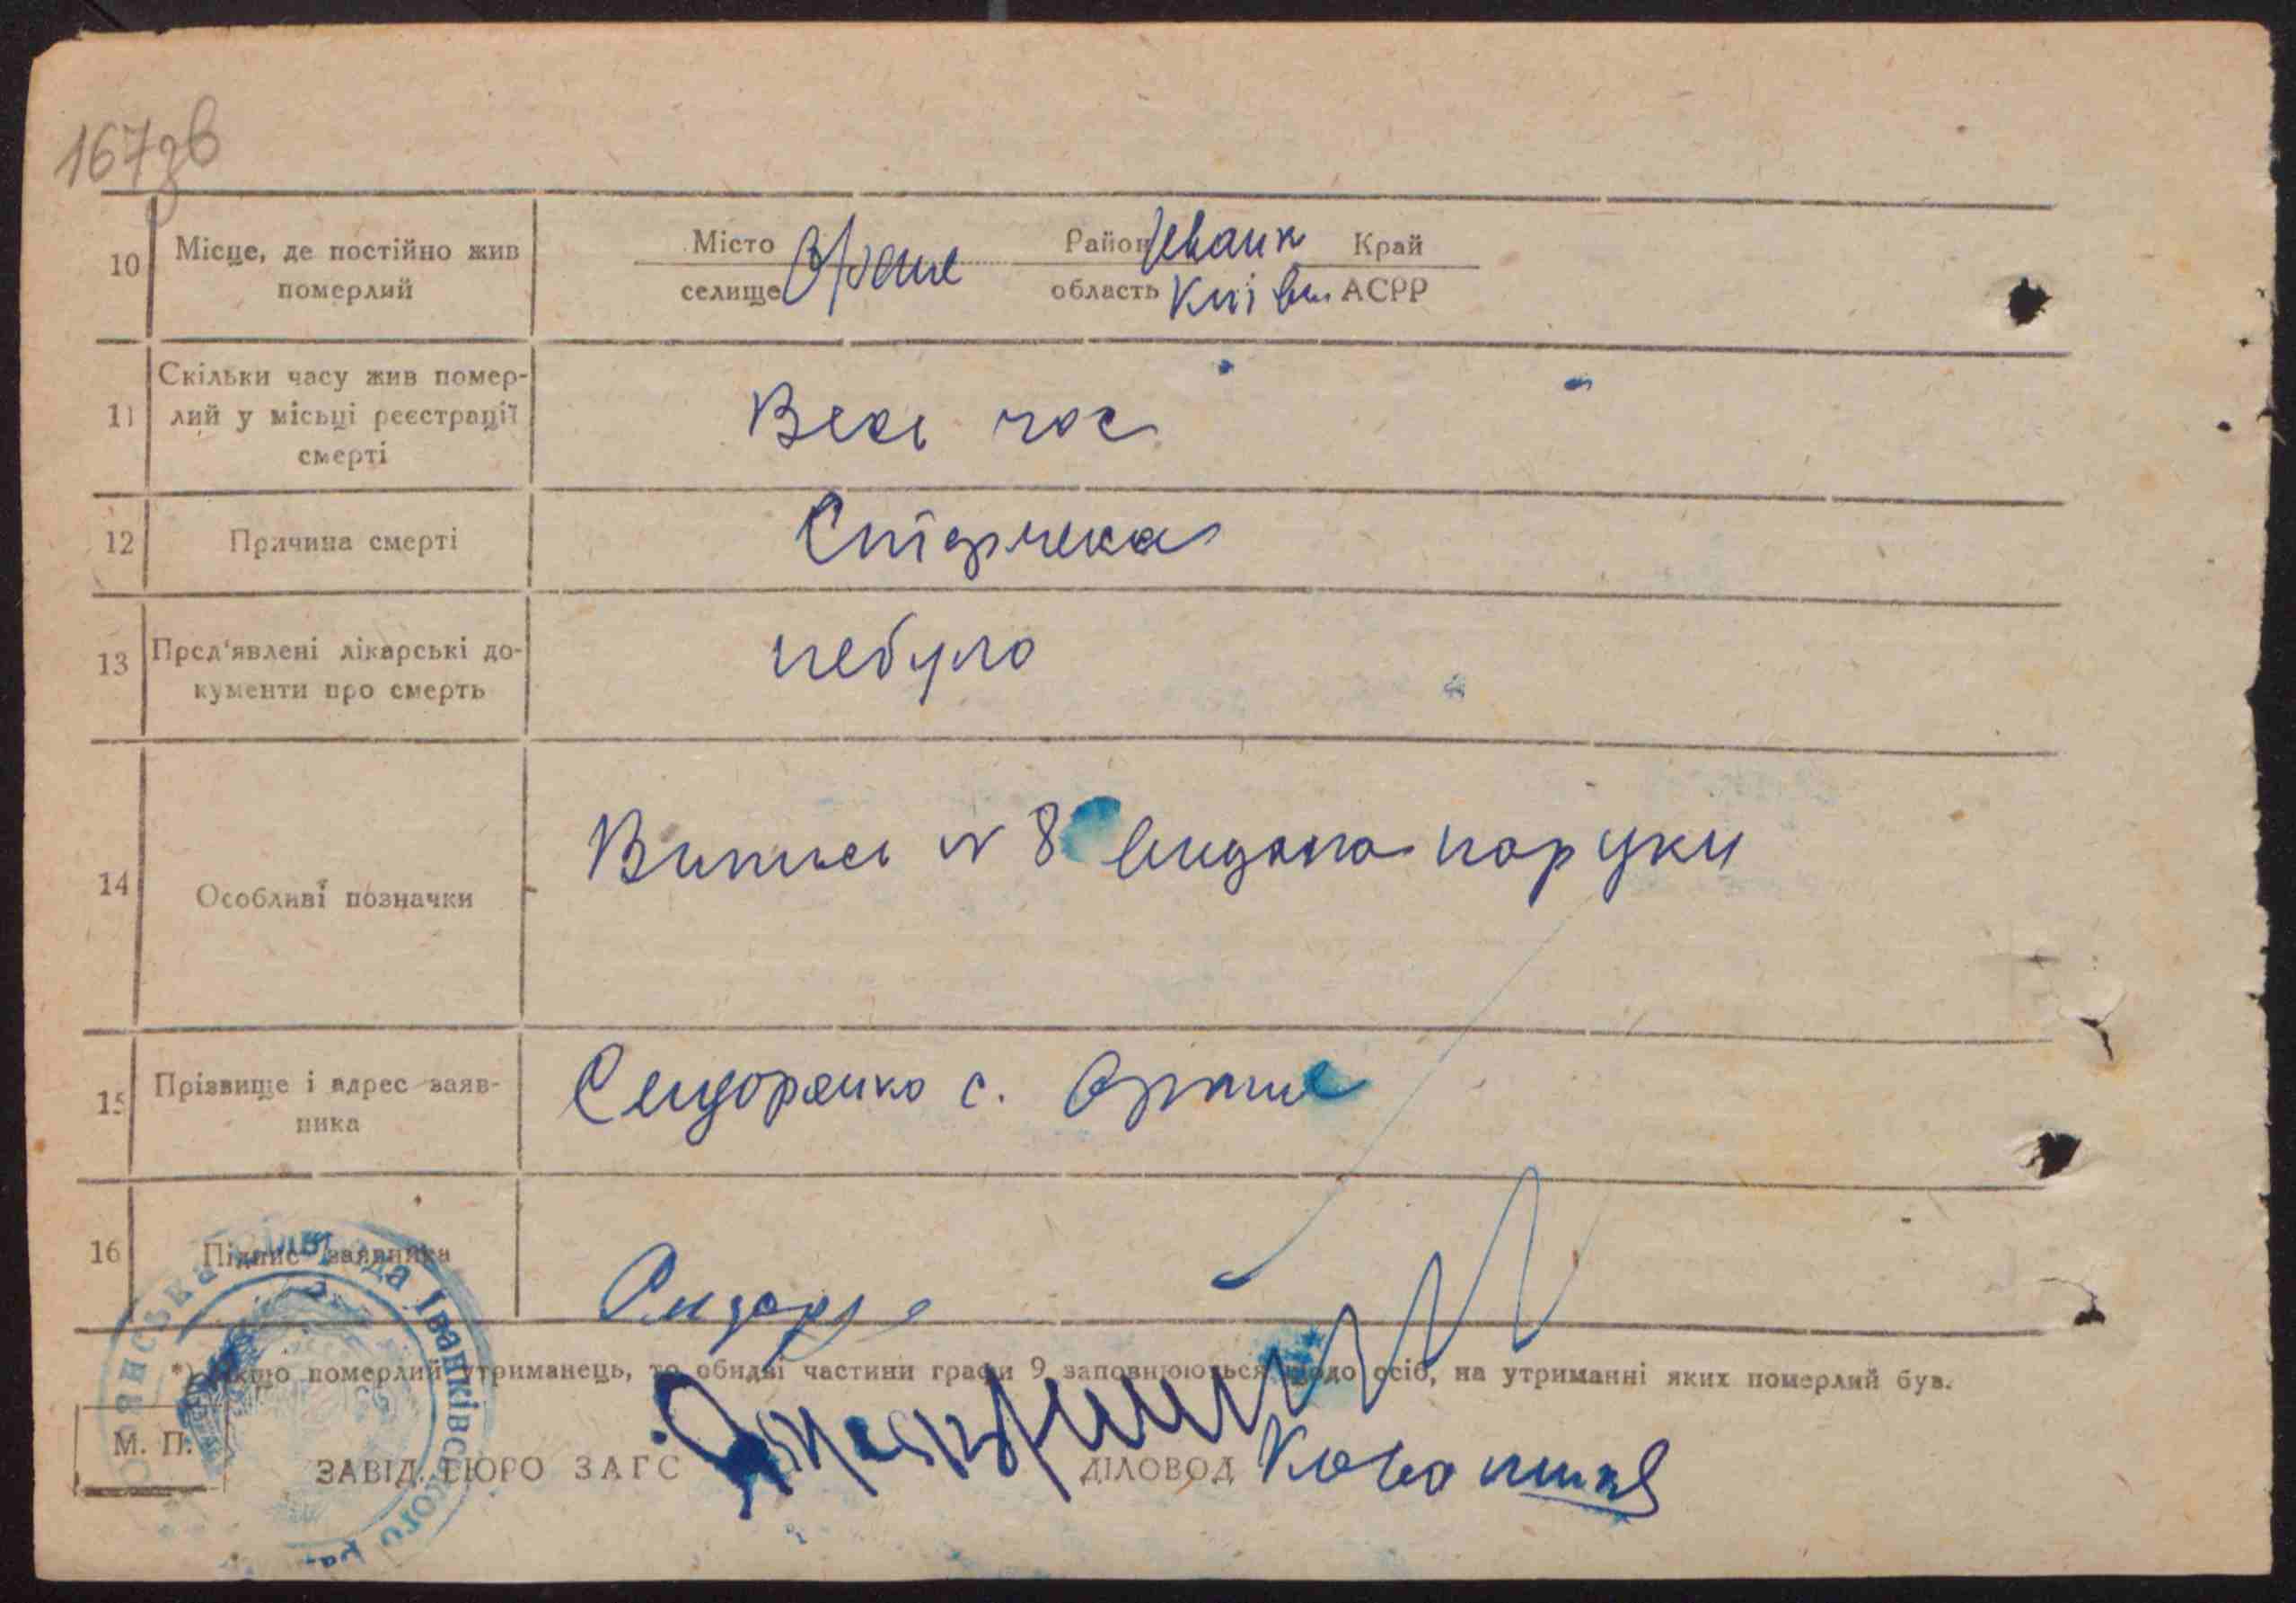 167зв
10 Місце, де постійно жив померлий
Місто селище Оране Район Іванк область Київ Край АСРР
11 Скільки часу жив помер-
лий у місьці реєстрації
смерті
Весь час
12 Причина смерті
Старческа
13 Пред'явлені лікарські до-
кументи про смерть
небуло
14 Особливі позначки
Випись № 8 видана наруки
15 Прізвище і адрес заяв-
ника
Сидоренко с. Оране
16 Підпис заявника
Сидоре
*) Якщо померлий утриманець, то обидві частини графи 9 заповнюються щодо осіб, на утриманні яких померлий був.
М. П.
ЗАВІД. БЮРО ЗАГС
ДІЛОВОД
Іванківського